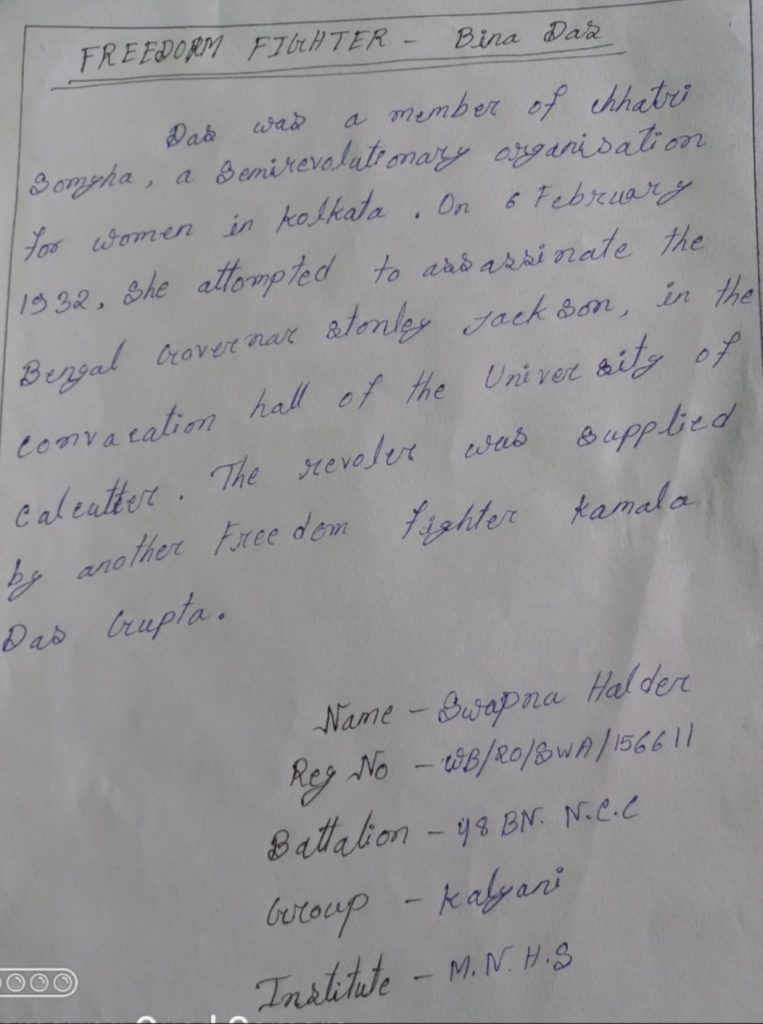 FREEDORM FIGHTER - Bina Das
Das was a member of chhatri
Somgha, a Semirevolutionary organisation
for women in kolkata. On 6 February
1932, She attompted to assassinate the
Bengal Governar stonley Jackson, in the
convacation hall of the University of
Calcutter. The revoler was supplied
by another Freedom fighter kamala
Das Gupta.
Name - Swapna Halder
Reg No - WB/20/SWA/156611
Battalion - 48 BN. N.C.C
Group - Kalyani
Institute - M.N.H.S